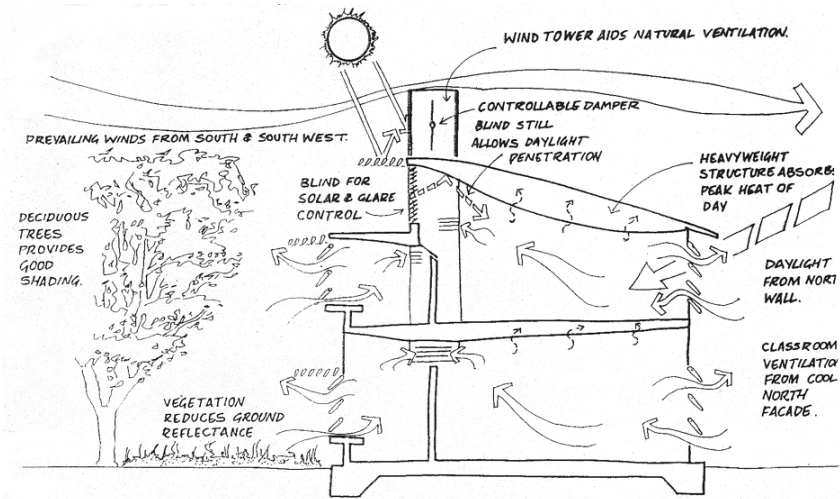 WIND TOWER AIDS NATURAL VENTILATION.
CONTROLLABLE DAMPER
BLIND STILL
ALLOWS DAYLIGHT
PENETRATION
PREVAILING WINDS FROM SOUTH & SOUTH WEST.
HEAVYWEIGHT
STRUCTURE ABSORBS
PEAK HEAT OF
DAY
BLIND FOR
SOLAR & GLARE
CONTROL
DECIDUOUS
TREES
PROVIDES
GOOD
SHADING.
DAYLIGHT
FROM NORT
WALL.
CLASSROOM
VENTILATIO
FROM COOL
NORTH
FACADE.
VEGETATION
REDUCES GROUND
REFLECTANCE